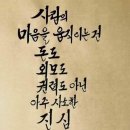 사람의
마음을 움직이는건
돈도
외모도
권력도 아닌
아주 사소한
진심